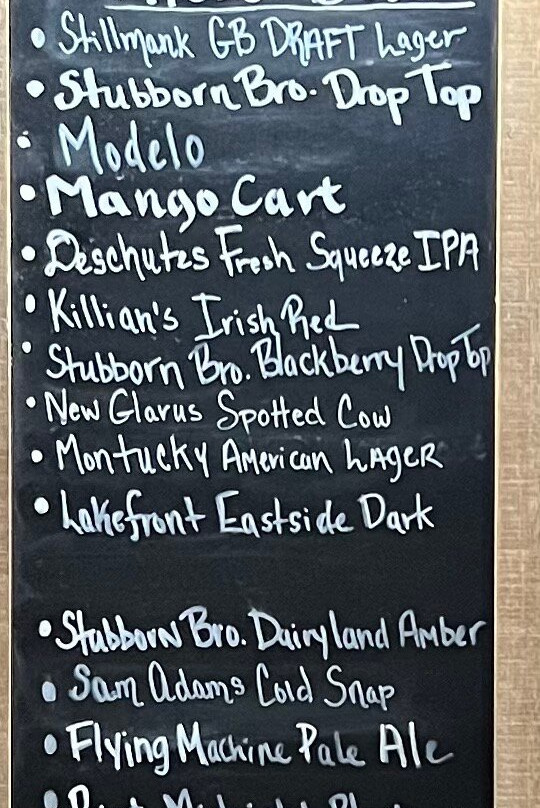 • Stillmank GB DRAFT Lager
• Stubborn Bro. Drop Top
• Modelo
• Mango Cart
• Deschutes Fresh Squeeze IPA
• Killian's Irish Red
• Stubborn Bro. Blackberry Drop Top
• New Glarus Spotted Cow
• Montucky American LAGER
• Lakefront Eastside Dark
• Stubborn Bro. Dairyland Amber
• Sam Adams Cold Snap
• Flying Machine Pale Ale